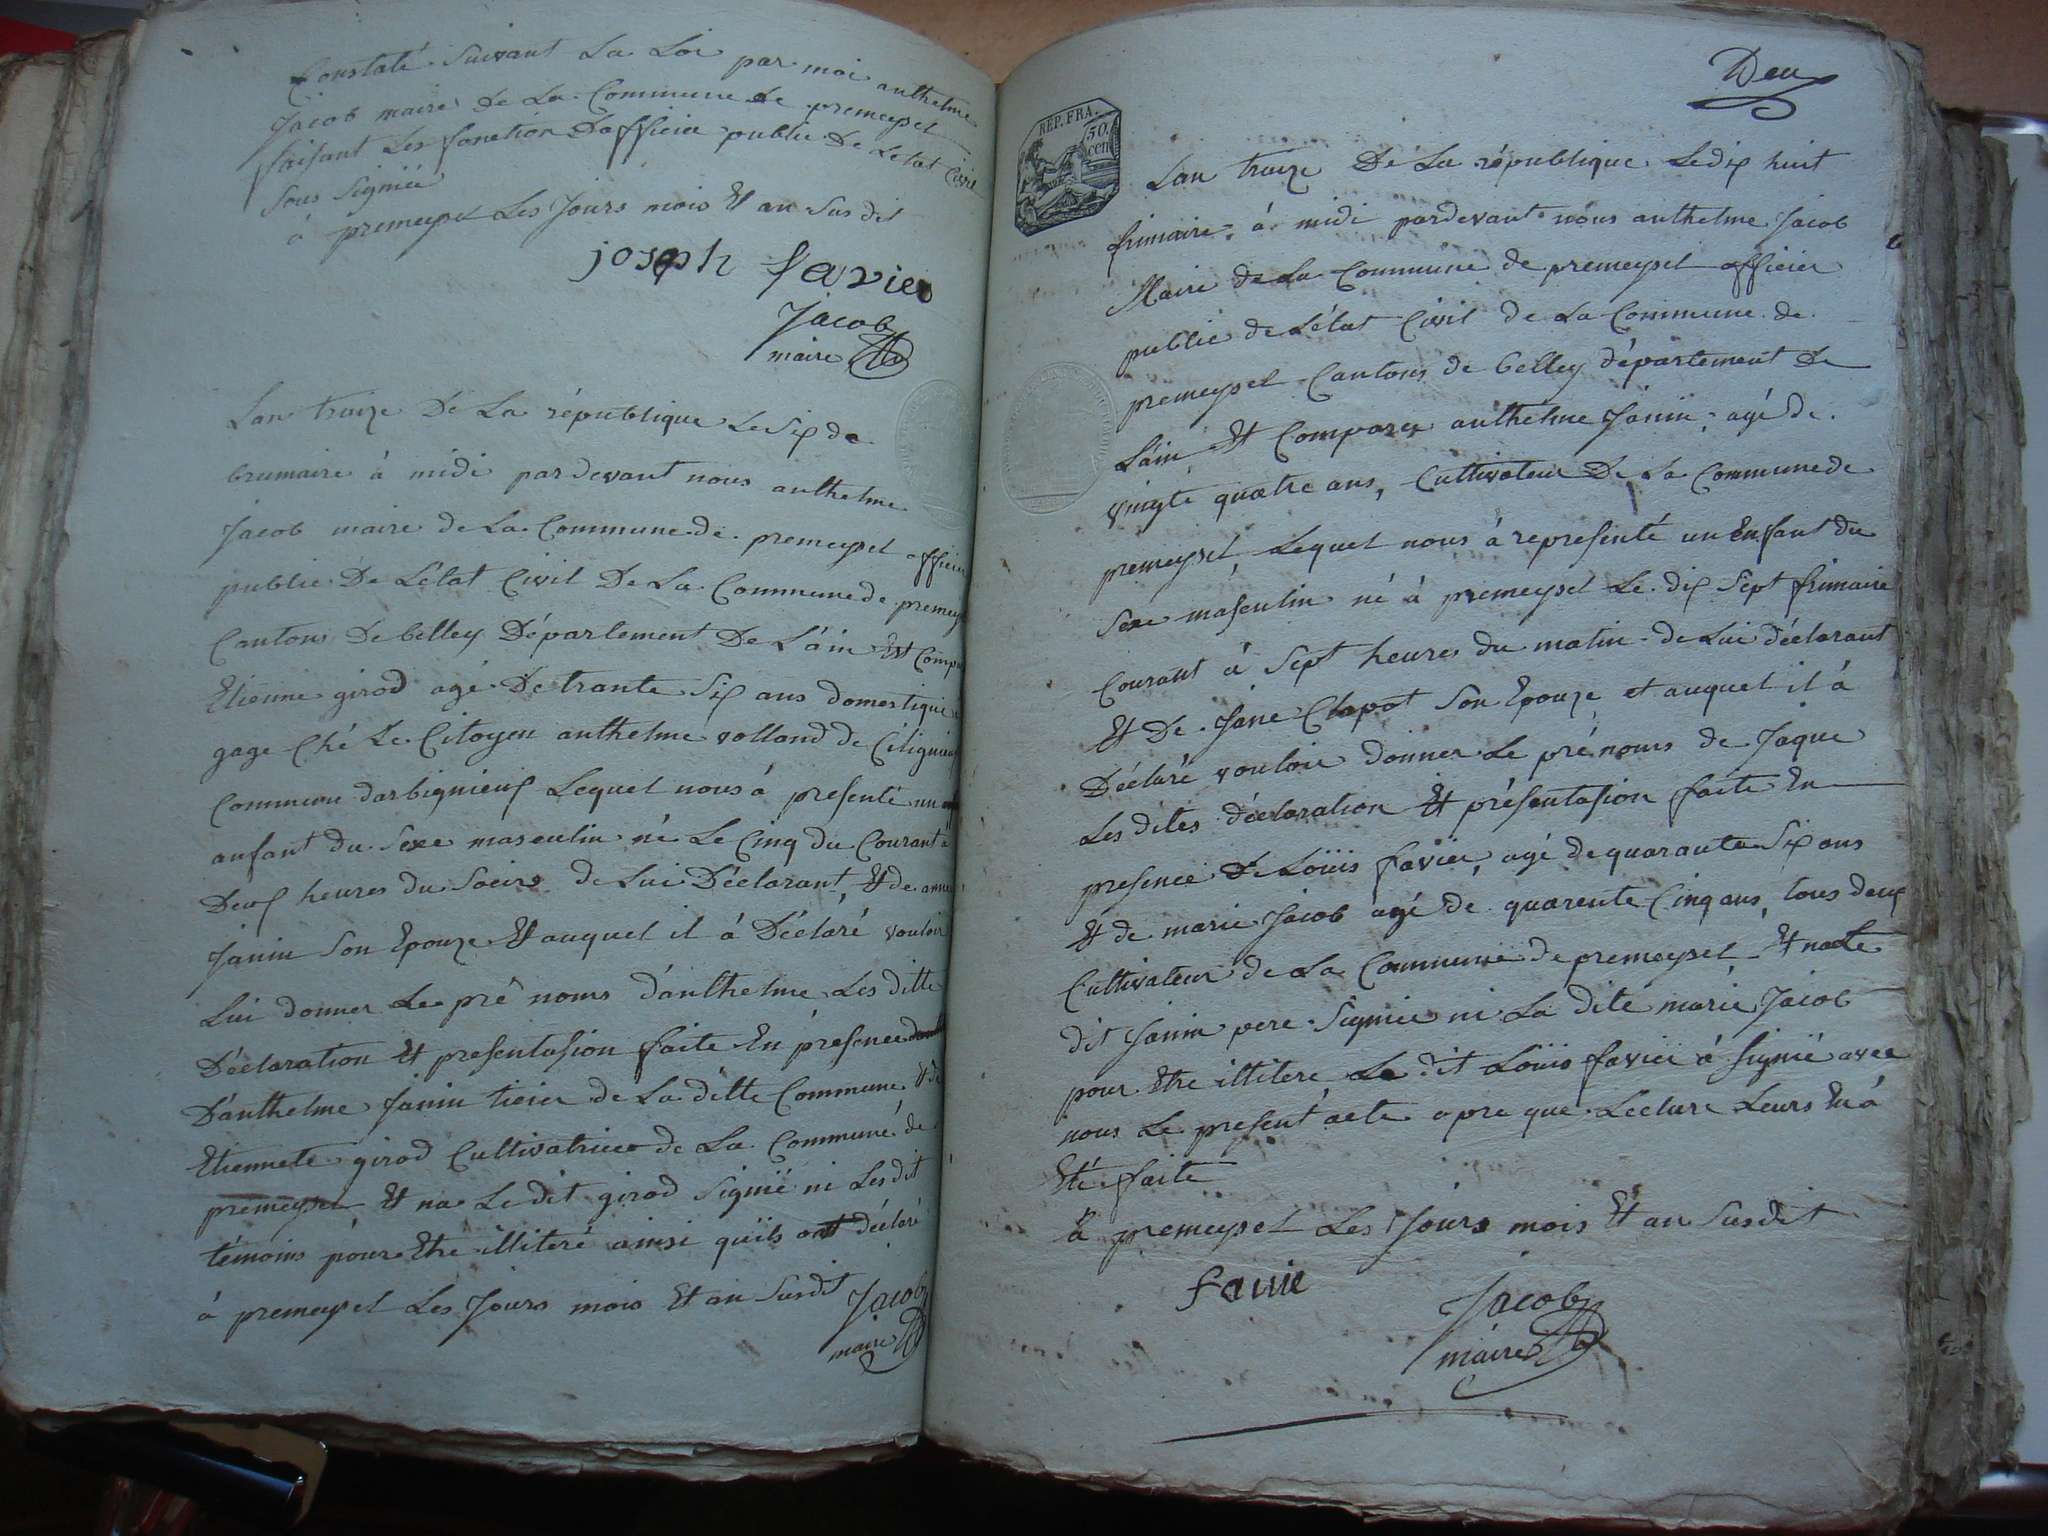 Constaté Suivant La Loi par moi anthelme
Jacob maire De La Commune de premeysel
faisant Les fonction Dofficier public De Letat Civil
Sous Signié
à premeysel Les Jours mois Et an Sus dit
joseph favier
Jacob
maire
Lan traize De La république Le Six de
brumaire à midi pardevant nous anthelme
Jacob maire de La Commune de premeysel officier
public De Létat Civil De La Commune de premeys
Cantons De belley Département De L'ain Est Comp
Etienne girod agé De trante Six ans domestique
gage Ché Le Citoyen anthelme volland de
Commune darbignieux Lequel nous à presenté un
anfant du Sexe masculin né Le Cinq du Courant à
Deux heures du Soeir de Lui Déclarant, Et de anne
Janin Son Epouze Et auquel il à Déclaré vouloir
Lui donner Le pré noms d'anthelme Les ditte
Déclaration Et presentasion faite En présence
D'anthelme Janin tieier de La ditte Commune, & de
Etiennete girod Cultivatrice de La Commune de
premeysel Et na Le dit girod Signié ni Les dit
témoins pour Etre illiteré ainsi quils ont déclaré
à premeysel Les Jours mois Et an Susdit
Jacob
maire
Deu
REP. FRA.
50.
cen
Lan traize De La république Le dix huit
frimaire à midi pardevant nous anthelme Jacob
Maire de La Commune de premeysel officier
public de Létat Civil de La Commune de
premeysel Cantons de belley département De
L'ain Et Comparu anthelme Janin, agé de
vingte quatre ans, Cultivateur De La Commune de
premeysel, Lequel nous à représenté un Enfant du
Sexe masculin né à premeysel Le dix Sept frimaire
Courant à Sept heures du matin de Lui déclarant
Et De Jane Clapot Son Epouze et auquel il à
Déclaré vouloir donner Le pré noms de Jaque
Les dites déclaration Et présentasion faite En
presence De Loüis favier, agé de quarante Six ans
Et de marie Jacob agé de quarente Cinq ans, tous deux
Cultivateur de La Commune de premeysel Et na Le
dit Janin pere Signié ni La dite marie Jacob
pour Etre illitere Le dit Loüis favier à Signié avec
nous Le present acte apre que Lecture Leurs En à
Eté faite
à premeysel Les Jours mois Et an Susdit
favie
Jacob
maire